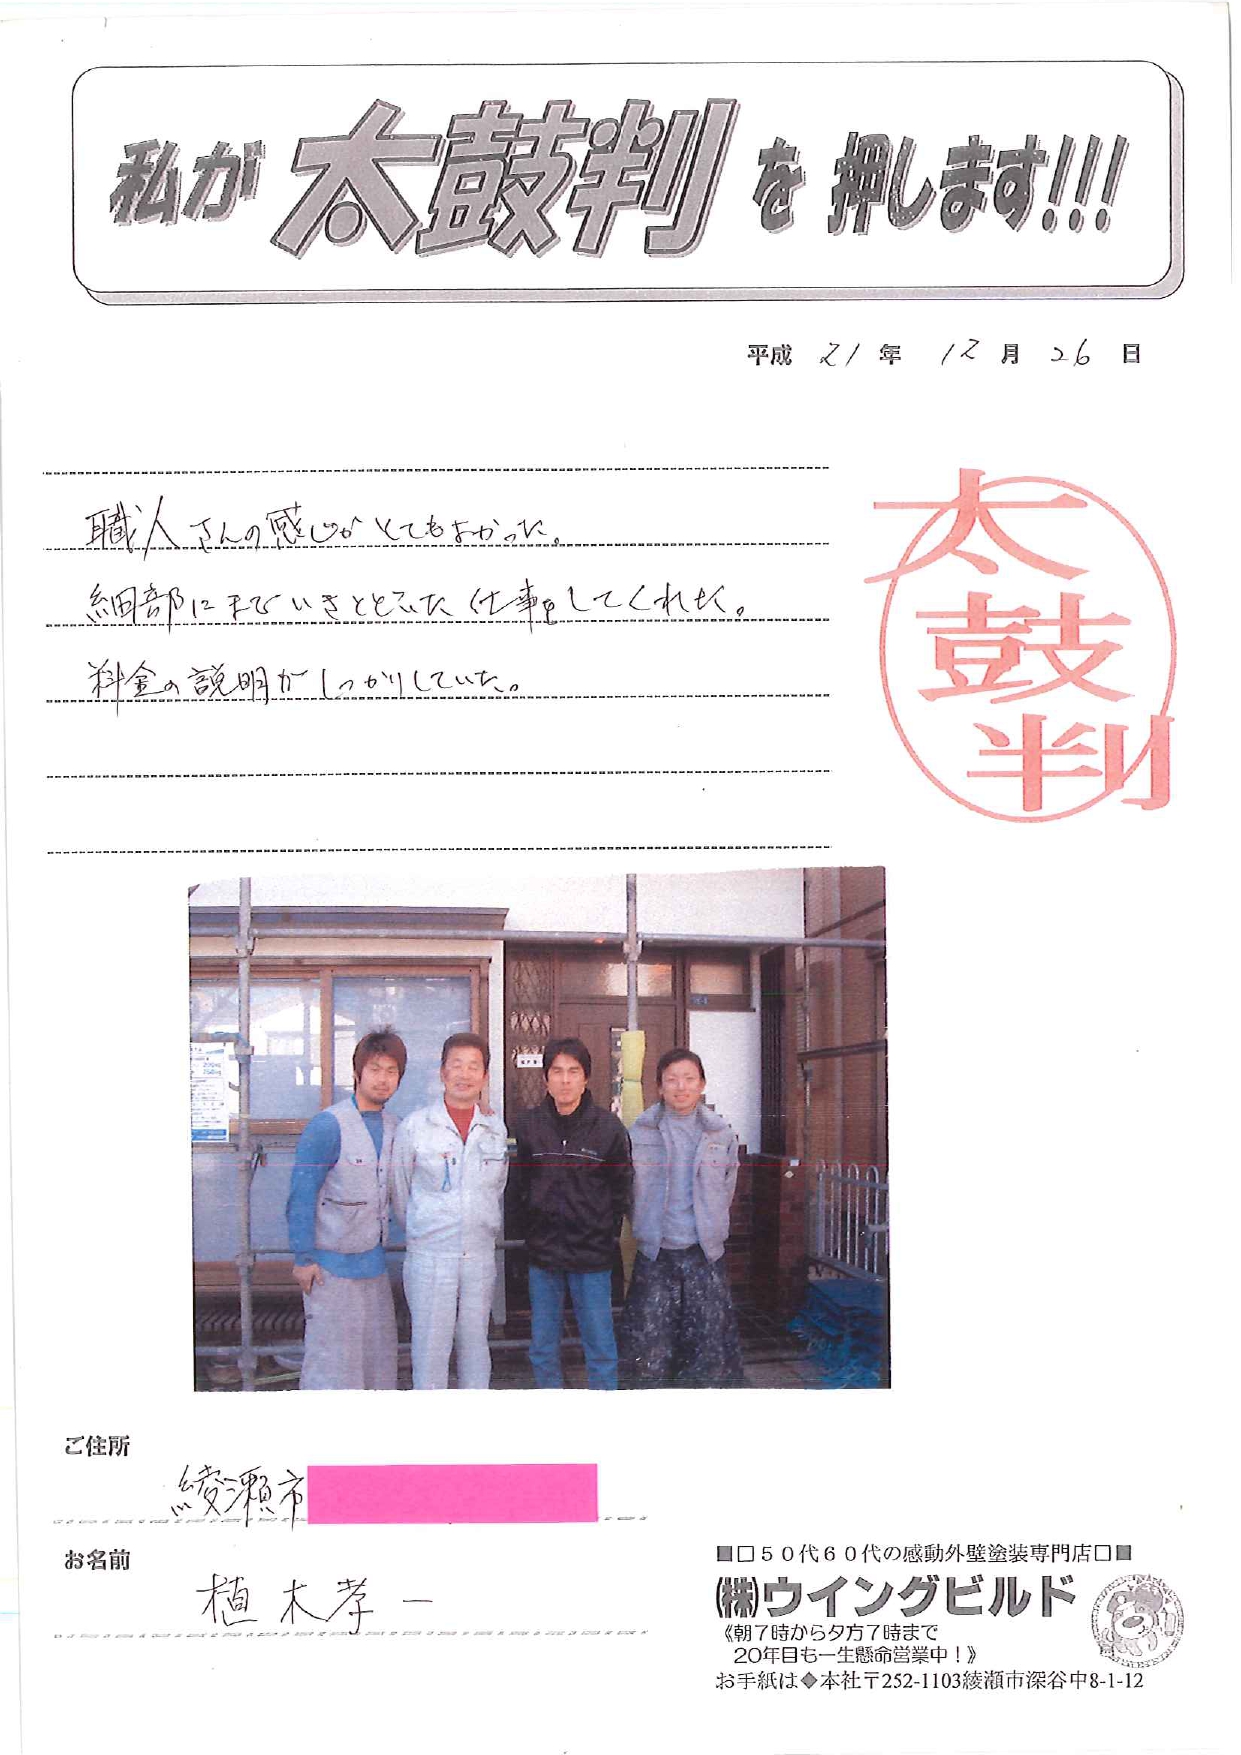 私が太鼓判を押します!!!
平成 21 年 12 月 26 日
職人さんの感じがとてもよかった。
細部にまでいきとどいた仕事をしてくれた。
料金の説明がしっかりしていた。
太
鼓
判
ご住所
綾瀬市
お名前
植木孝一
■□50代60代の感動外壁塗装専門店□■
㈱ウイングビルド
《朝7時から夕方7時まで
20年目も一生懸命営業中！》
お手紙は◆本社〒252-1103綾瀬市深谷中8-1-12